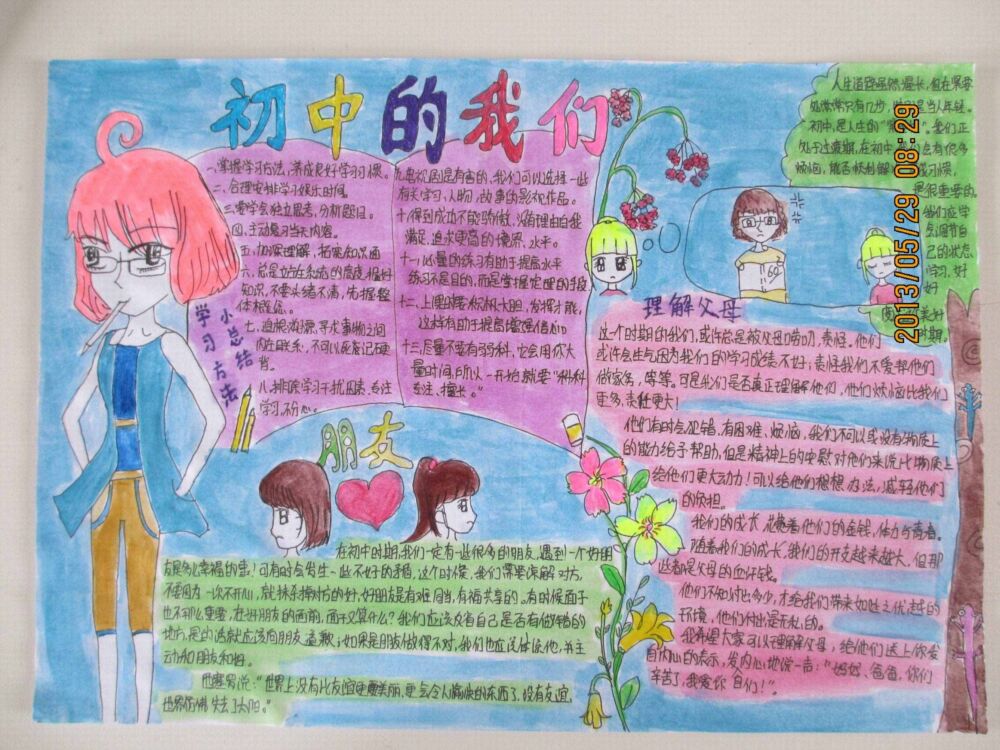 初中的我们
一、掌握学习方法,养成良好学习习惯。
二、合理安排学习娱乐时间。
三、要学会独立思考,分析题目。
四、主动复习当天内容。
五、加深理解,拓宽知识面
六、总是立方在系统的高度,把好
知识,不要头绪不清,先把握整
体特征。
七、追根求源,寻求事物之间
内在联系,不可以死记硬
背。
八、排除学习干扰因素,专注
学习,不分心。
学习方法
小总结
有关学习、人物、故事的影视作品。
十、得到成功不能骄傲,没有理由自我
满足,追求更高的境界、水平。
十一、必量的练习有助于提高水平
练习不是目的,而是掌握定理的手段
十二、上课回答
这样有助于提高增强自信心
十三、尽量不要有弱科,它会用你大
量时间,所以一开始就要"科科
专注、擅长。"
人生道路虽然漫长,但在紧要
处常常只有几步
初中,是人生的
处于过渡期,在初中
烦恼,能否顺利解
是很重要的。
我们应学
会调节自
己的状态
学习,好
好
时期。
60
2013/05/29 08:29
理解父母
这个时期的我们,或许总是被父母唠叨,责怪。他们
或许会生气因为我们的学习成绩不好;责怪我们不爱帮他们
做家务,等等。可是我们是否真正理解他们,他们烦恼比我们
更多,责任更大!
他们有时会犯错,有困难、烦恼。我们不可以或没有物质上
的能力给予帮助,但是精神上的安慰对他们来说比物质上
给他们更大动力!可以给他们想想办法,减轻他们
的负担。
我们的成长,花费着他们的金钱,体力与青春。
随着我们的成长,我们的开支越来越大,但那
些都是父母的血汗钱。
他们不知付出多少,才给我们带来如此之优越的
环境,他们付出是无私的。
我希望大家可以理解父母,给他们送上你发
自内心的表示,发内心地说一声:"妈妈、爸爸,你们
辛苦了,我爱你们!"。
朋友
在初中时期,我们一定有一些很多的朋友,遇到一个好朋
友是多么幸福的事!可有时会发生一些不好的矛盾,这个时候,我们需要谅解对方,
不要因为一次不开心,就抹杀掉对方的好,好朋友是有难同当,有福共享的。有时候面子
也不那么重要,在好朋友的面前,面子又算什么?我们应该反省自己是否有做错的
地方,是的话就应该向朋友道歉;如果是朋友做得不对,我们也应该体谅他,并主
动和朋友和好。
世界上没有比友谊更美丽,更令人愉快的东西了,没有友谊,
世界仿佛失去了太阳。"